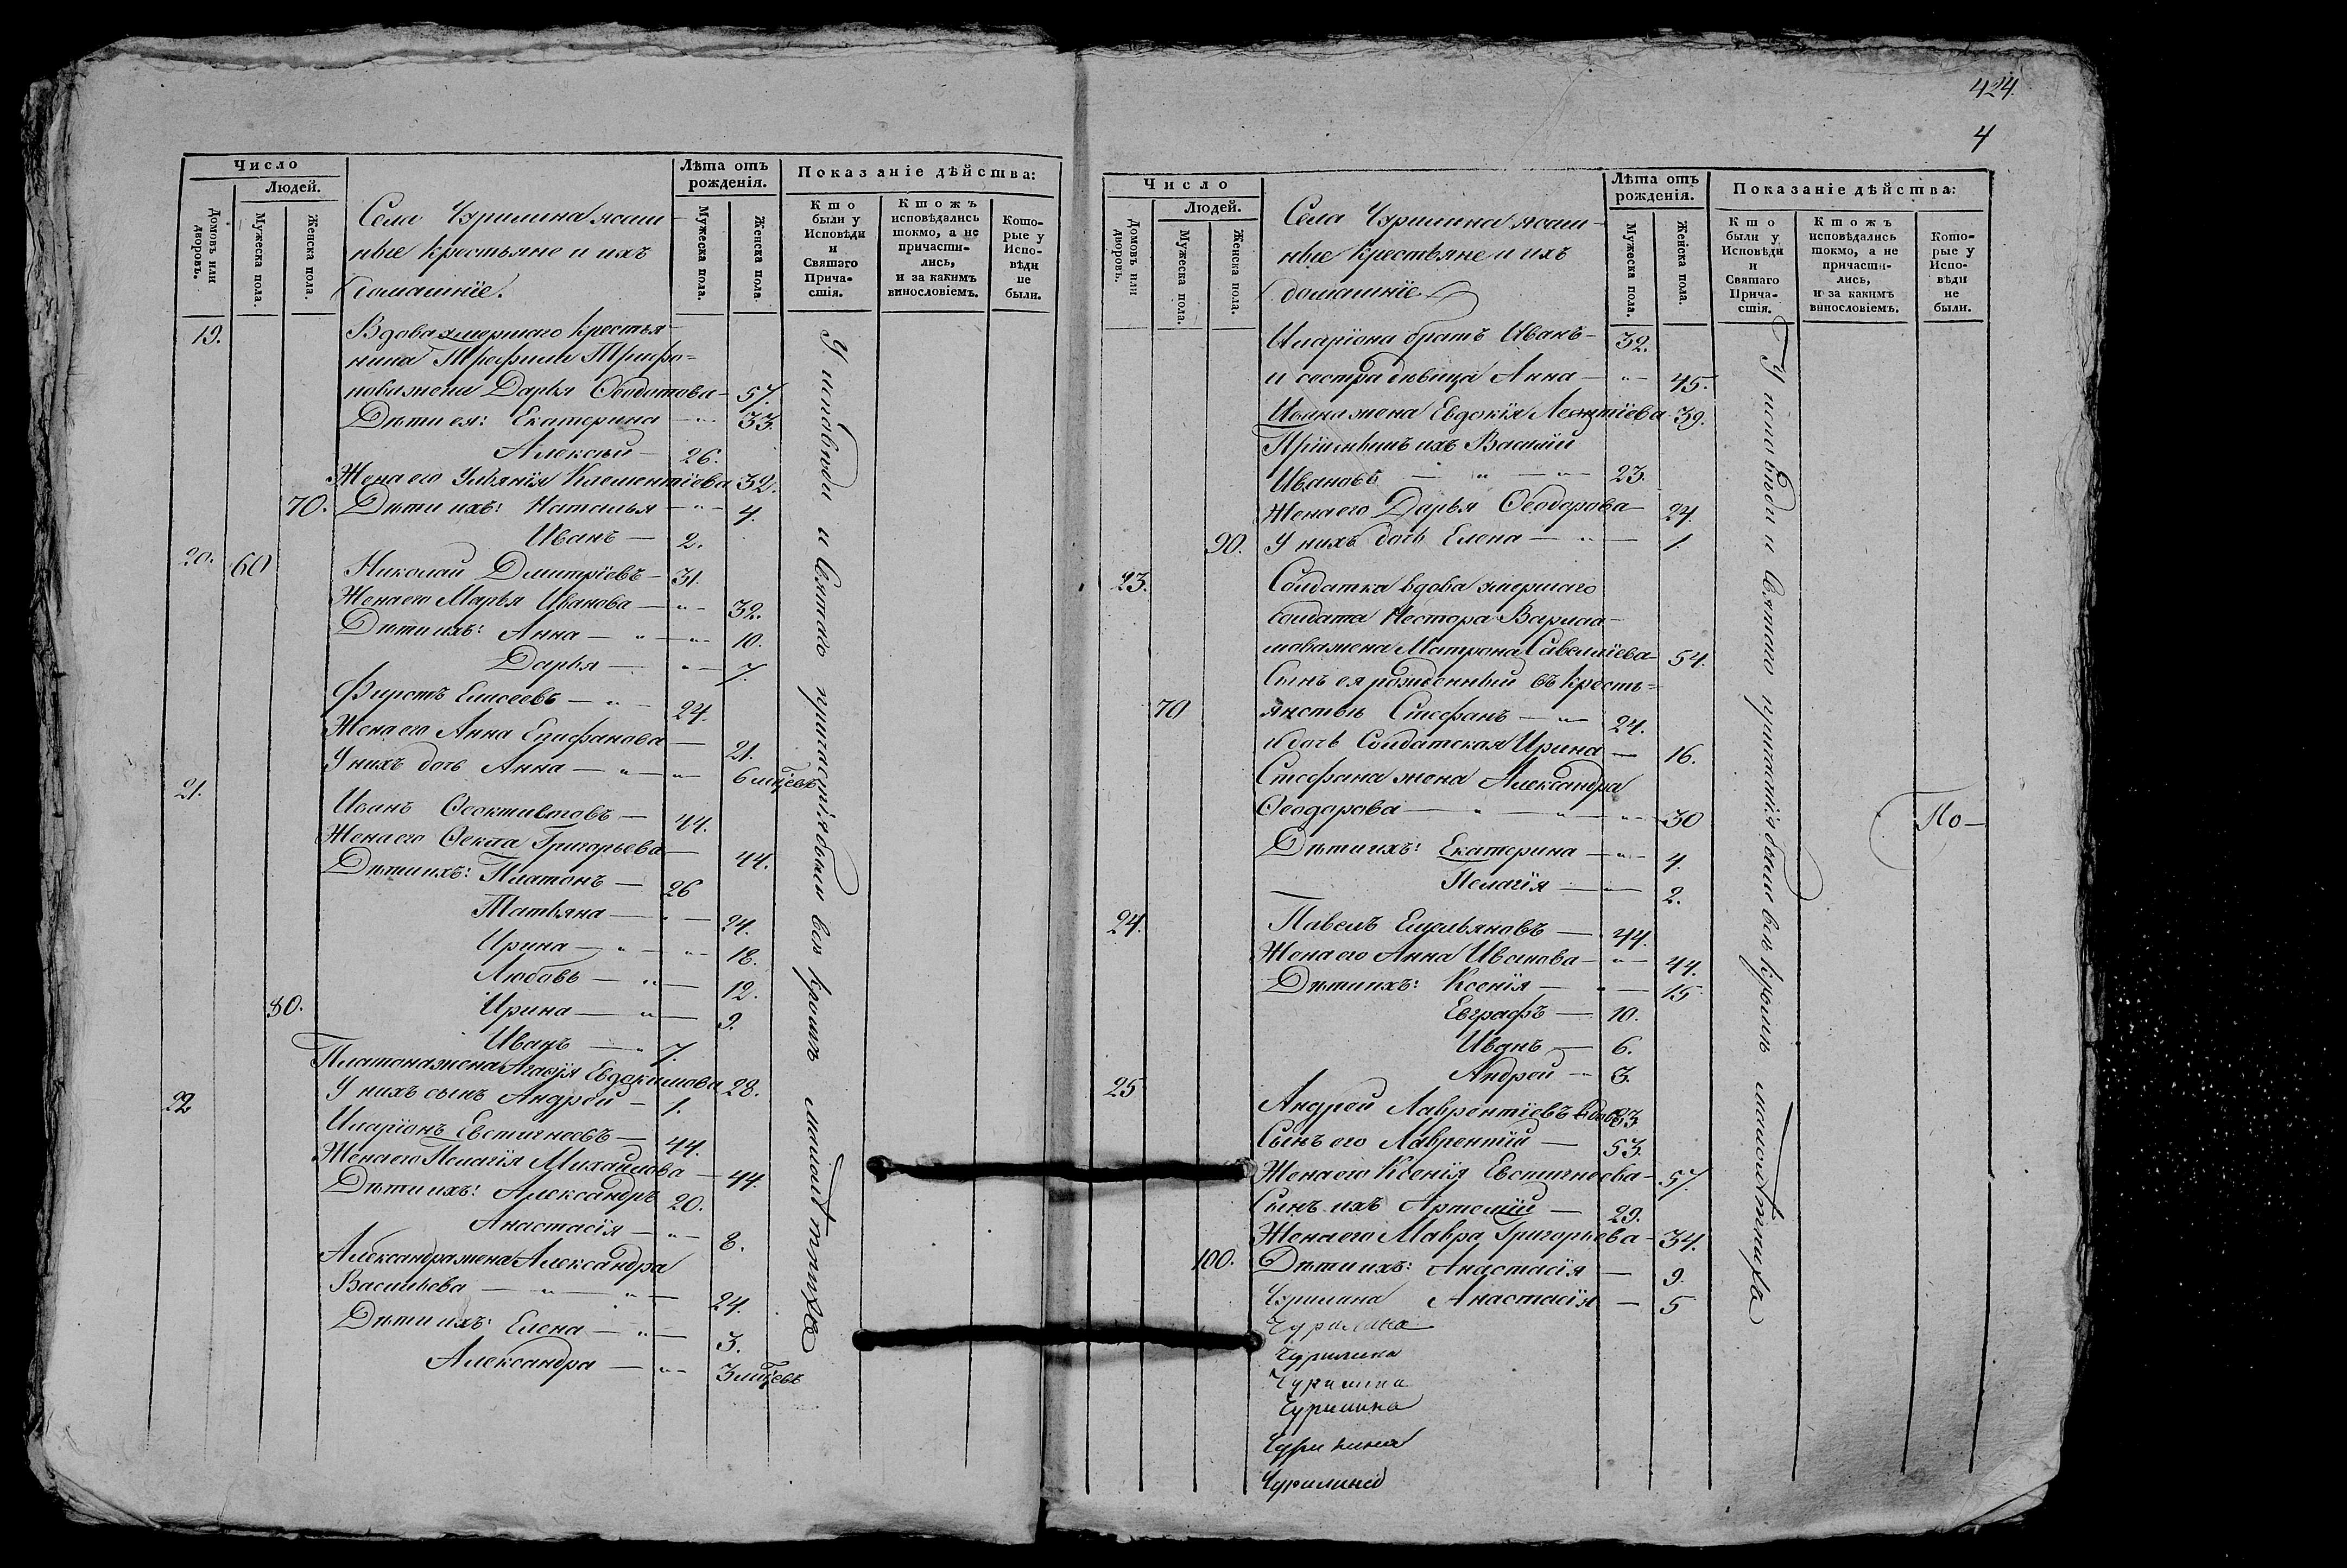 Число
Людей.
Домовъ или дворовъ.
Мужеска пола.
Женска пола.
Села Чурилина ясаш-
ные крестьяне и ихъ
домашнїе.
Лѣта отъ рожденія.
Мужеска пола.
Женска пола.
Показаніе дѣйства:
Кто были у Исповѣди и Святаго Причастія.
Ктожъ исповѣдались токмо, а не причастились, и за какимъ винословіемъ.
Которые у Исповѣди не были.
19. Вдова умершаго крестья-
нина Трофима Трифо-
нова жена Дарья Ѳедотова - 57.
Дѣти ея: Екатерина - 33.
Алексѣй - 26.
Жена его Ульянїя Клементїева 32.
70. Дѣти ихъ: Наталья - 4.
Иванъ - 2.
20. 60 Николай Дмитрїевъ - 31.
Жена его Марья Иванова - 32.
Дѣти ихъ: Анна - 10.
Дарья - 7.
Фирстъ Елисеевъ - 24.
Жена его Анна Епифанова - 21.
У нихъ дочь Анна - 6 мцевъ
21. Иванъ Ѳеоктистовъ - 44.
Жена его Ѳекла Григорьева - 44.
Дѣти ихъ: Платонъ - 26
Татьяна - 24.
Ирина - 18.
Любовь - 12.
80. Ирина - 9.
Иванъ - 7.
Платона жена Агафїя Евдокимова 28.
У нихъ сынъ Андрей - 1.
22 Иларїонъ Евстигнеевъ - 44.
Жена его Пелагїя Михайлова - 44.
Дѣти ихъ: Александръ 20.
Анастасїя - 8.
Александра жена Александра
Васильева - 24.
Дѣти ихъ: Елена - 3.
Александра - 3 мцевъ
У исповѣди и святаго причастїя были всѣ кромѣ малолѣтнихъ
424.
4
Число
Людей.
Домовъ или дворовъ.
Мужеска пола.
Женска пола.
Села Чурилина ясаш-
ные крестьяне и ихъ
домашнїе
Лѣта отъ рожденія.
Мужеска пола.
Женска пола.
Показаніе дѣйства:
Кто были у Исповѣди и Святаго Причастія.
Ктожъ исповѣдались токмо, а не причастились, и за какимъ винословіемъ.
Которые у Исповѣди не были.
Иларїона братъ Иванъ - 32.
и сестра дѣвица Анна - 45.
Ивана жена Евдокїя Леонтїева 39.
Прїемышъ ихъ Василїй
Ивановъ - 23.
Жена его Дарья Ѳеодорова - 24.
90. У нихъ дочь Елена - 1.
23. Солдатка вдова умершаго
солдата Нестора Варлаа-
мова жена Матрона Савельїева 54.
Сынъ ея рожденный въ кресть-
70 янствѣ Стефанъ - 24.
и дочь Солдатская Ирина - 16.
Стефана жена Александра
Ѳеодорова - 30
Дѣти ихъ: Екатерина - 4.
Пелагїя - 2.
24. Павелъ Емельяновъ - 44.
Жена его Анна Иванова - 44.
Дѣти ихъ: Ксенїя - 15
Евграфъ - 10.
Иванъ - 6.
Андрей - 3.
25 Андрей Лаврентїевъ вдовъ 83
Сынъ его Лаврентїй - 53.
Жена его Ксенїя Евстигнеева - 57.
Сынъ ихъ Артемїй - 29.
Жена его Мавра Григорьева - 34.
100. Дѣти ихъ: Анастасїя - 9.
Чурилина Анастасїя - 5
Чурилина
Чурилина
Чурилина
Чурилина
Чурилина
Чурилина
У исповѣди и святаго причастїя были всѣ кромѣ малолѣтнихъ
По-